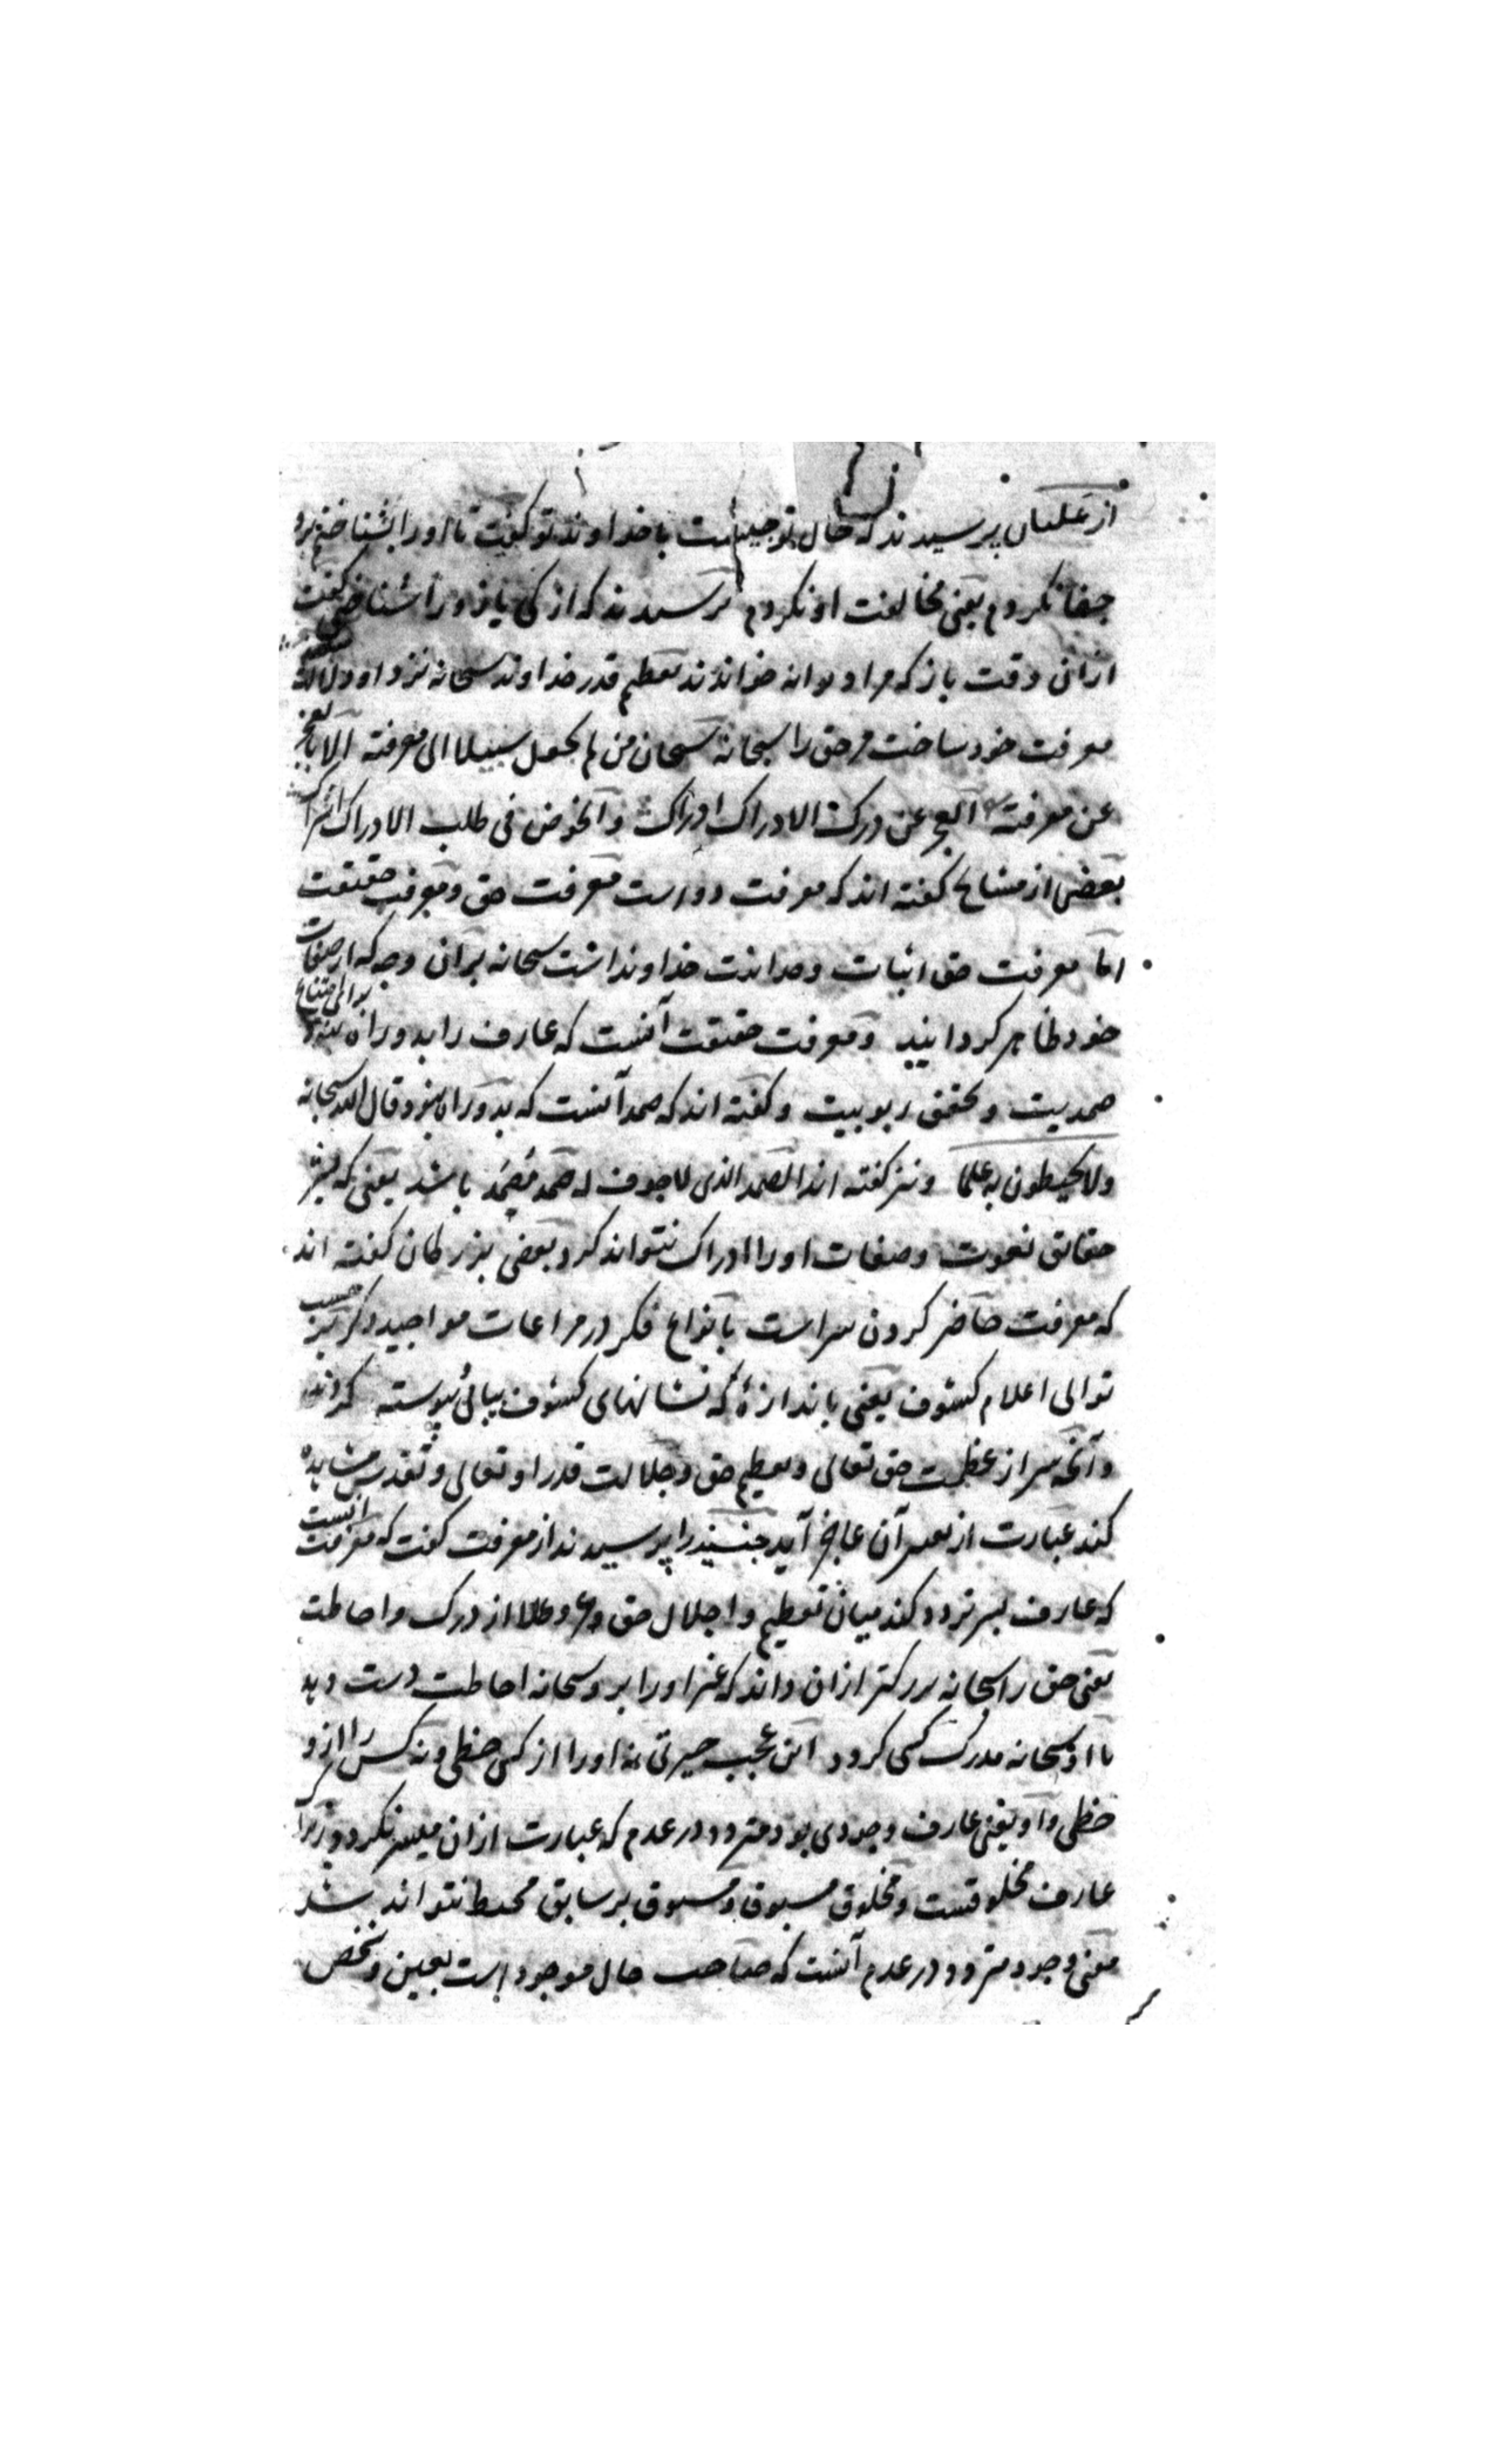 از علیان پرسیدند که حال تو چیست با خداوند تو گفت تا او را بشناختم برو
جفا نکردم یعنی مخالفت او نکردم پرسیدند که از کی باز او را شناختی گفت
ازانی وقت باز که مرا دیوانه خواندند تعظیم قدر خداوند سبحانه نزد او دلالت
معرفت خود ساخت مر حق را سبحانه سبحان من لم یجعل سبیلا الی معرفته الا بالعجز
عن معرفته العجز عن درک الادراک ادراک والخوض فی طلب الادراک اشراک
بعضی از مشایخ گفته اند که معرفت دو است معرفت حق و معرفت حقیقت
اما معرفت حق اثبات وحدانیت خداوند است سبحانه بران وجه که از صفات
خود ظاهر کردانید و معرفت حقیقت آنست که عارف را بدو راه نبود برای امتناع
صمدیت و تحقق ربوبیت و گفته اند که صمد آنست که بدو راه نبود قال الله سبحانه
ولا یحیطون به علما و نیز گفته اند الصمد الذی لا جوف له صمد مصمد باشد یعنی که بشر
حقایق نعوت و صفات او را ادراک نتواند کرد بعضی بزرگان گفته اند
که معرفت حاضر کردن سر است بانواع فکر در مراعات مواجید ذکر بر حسب
توالی اعلام کشوف یعنی باندازهٔ که نشانهای کشوف پیاپی پیوسته کردند
و آنچه سر از عظمت حق تعالی و تعظیم حق و جلالت قدر او تعالی و تقدس مشاهده
کند عبارت از تعبیر آن عاجز آید جنید را پرسیدند از معرفت گفت که معرفت آنست
که عارف بسر تردد کند میان تعظیم و اجلال حق عز و علا از درک و احاطت
یعنی حق را سبحانه بزرکتر ازان داند که غیر او را برو سبحانه احاطت دست دهد
یا او سبحانه مدرک کسی کردد اینت عجب حیرتی نه او را از کس حظی و نه کس را ازو
حظی و او یعنی عارف وجودی بود متردد در عدم که عبارت ازان میسر نکردد زیرا که
عارف مخلوقست و مخلوق مسبوق و مسبوق بر سابق محیط نتواند شد
معنی وجود متردد در عدم آنست که صاحب حال موجود است بعین و شخص